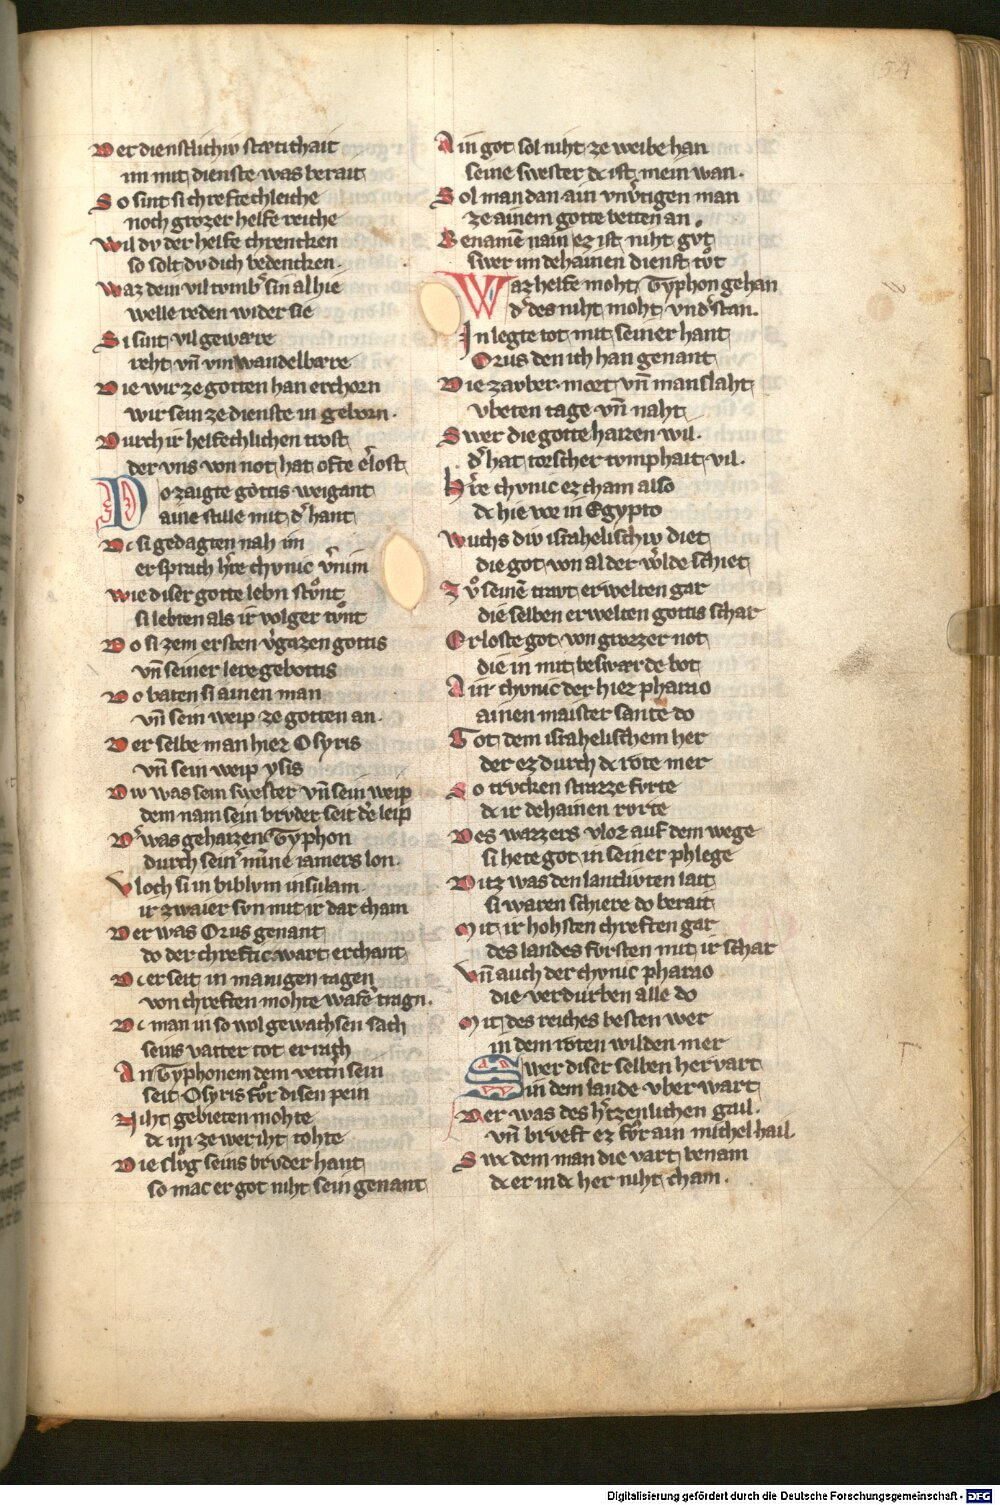 Der dienstlichiv stætichait
im mit dienste was berait
So sint si chreftechleiche
noch grozer helfe reiche
Wil dv der helfe chrencken
so solt dv dich bedencken.
Waz dein vil tvmb' sin al hie
welle reden wider sie
Si sint vil gewære
reht vn̄ vnwandelbære
Die wir ze gotten han erchorn
wir sein ze dienste in geborn.
Durch ir helfechlichen trost
der vns von not hat ofte e'lost
Do zaigte gottis weigant
aine stille mit d' hant
Dc si gedagten nah im
er sprach h're chvnic v'nim
wie diser gotte lebn stv̊nt
si lebten als ir volger tv̊nt
Do si zem ersten v'gazen gottis
vn̄ seiner lere gebottis
Do baten si ainen man
vn̄ sein weip ze gotten an.
Der selbe man hiez Osyris
vn̄ sein weip ysis
Div was sein swester vn̄ sein weip
dem nam sein brvder seit de' leip
D' was gehaizen Typhon
durch sein' minne iamers lon.
Vloch si in biblvm insulam
ir zwaier svn mit ir dar cham
Der was Orus genant
do der chreftic wart erchant
Dc er seit in manigen tagen
von chreften mohte wafē tragn.
Dc man in so wol gewachsen sach
seins vatter tot er rach
An Typhonem dem vettn̄ sein
seit Osyris fv̊r disen pein
Niht gebieten mohte
dc im ze wer iht tohte
Die slv̊g seins brvder hant
so mac er got niht sein genant
Ain got sol niht ze weibe han
seine swester dc ist mein wan.
Sol man dan ain vnv'tigen man
ze ainem gotte betten an
Benamē nain ez ist niht gv̊t
swer im dehainen dienst tv̊t
Waz helfe moht Typhon gehan
d' des niht moht vnd'stan.
In legte tot mit seiner hant
Orus den ich han genant
Die zavber. mort vn̄ manslaht
vbeten tage vn̄ naht
Swer die gotte haizen wil.
d' hat torscher tvmphait vil.
H're chvnic ez cham also
dc hie vor in Egypto
Wuchs div israhelischiv diet
die got von al der w'lde schiet
Zv̊ seinē travt erwelten gar
die selben erwelten gottis schar
Erloste got von grozzer not
die in mit beswærde bot
Air chvnic der hiez pharao
ainen maister sante do
Got dem israhelischem her
der ez durch dc rote mer
So trvcken strazze fvrte
dc ir dehainen rorte
Des wazzers vloz auf dem wege
si hete got in seiner phlege
Ditz was den lantlivten lait
si waren schiere do berait
Mit ir hohsten chreften gar
des landes fvrsten mit ir schar
Vn̄ auch der chvnic pharao
die verdurben alle do
Mit des reiches besten wer
in dem roten wilden mer
Swer diser selben hervart
in dem lande vber wart
Der was des h'tzenlichen gail.
vn̄ brveft ez fv̊r ain michel hail.
Swc dem man die vart benam
dc er in dc her niht cham.
Digitalisierung gefördert durch die Deutsche Forschungsgemeinschaft - DFG